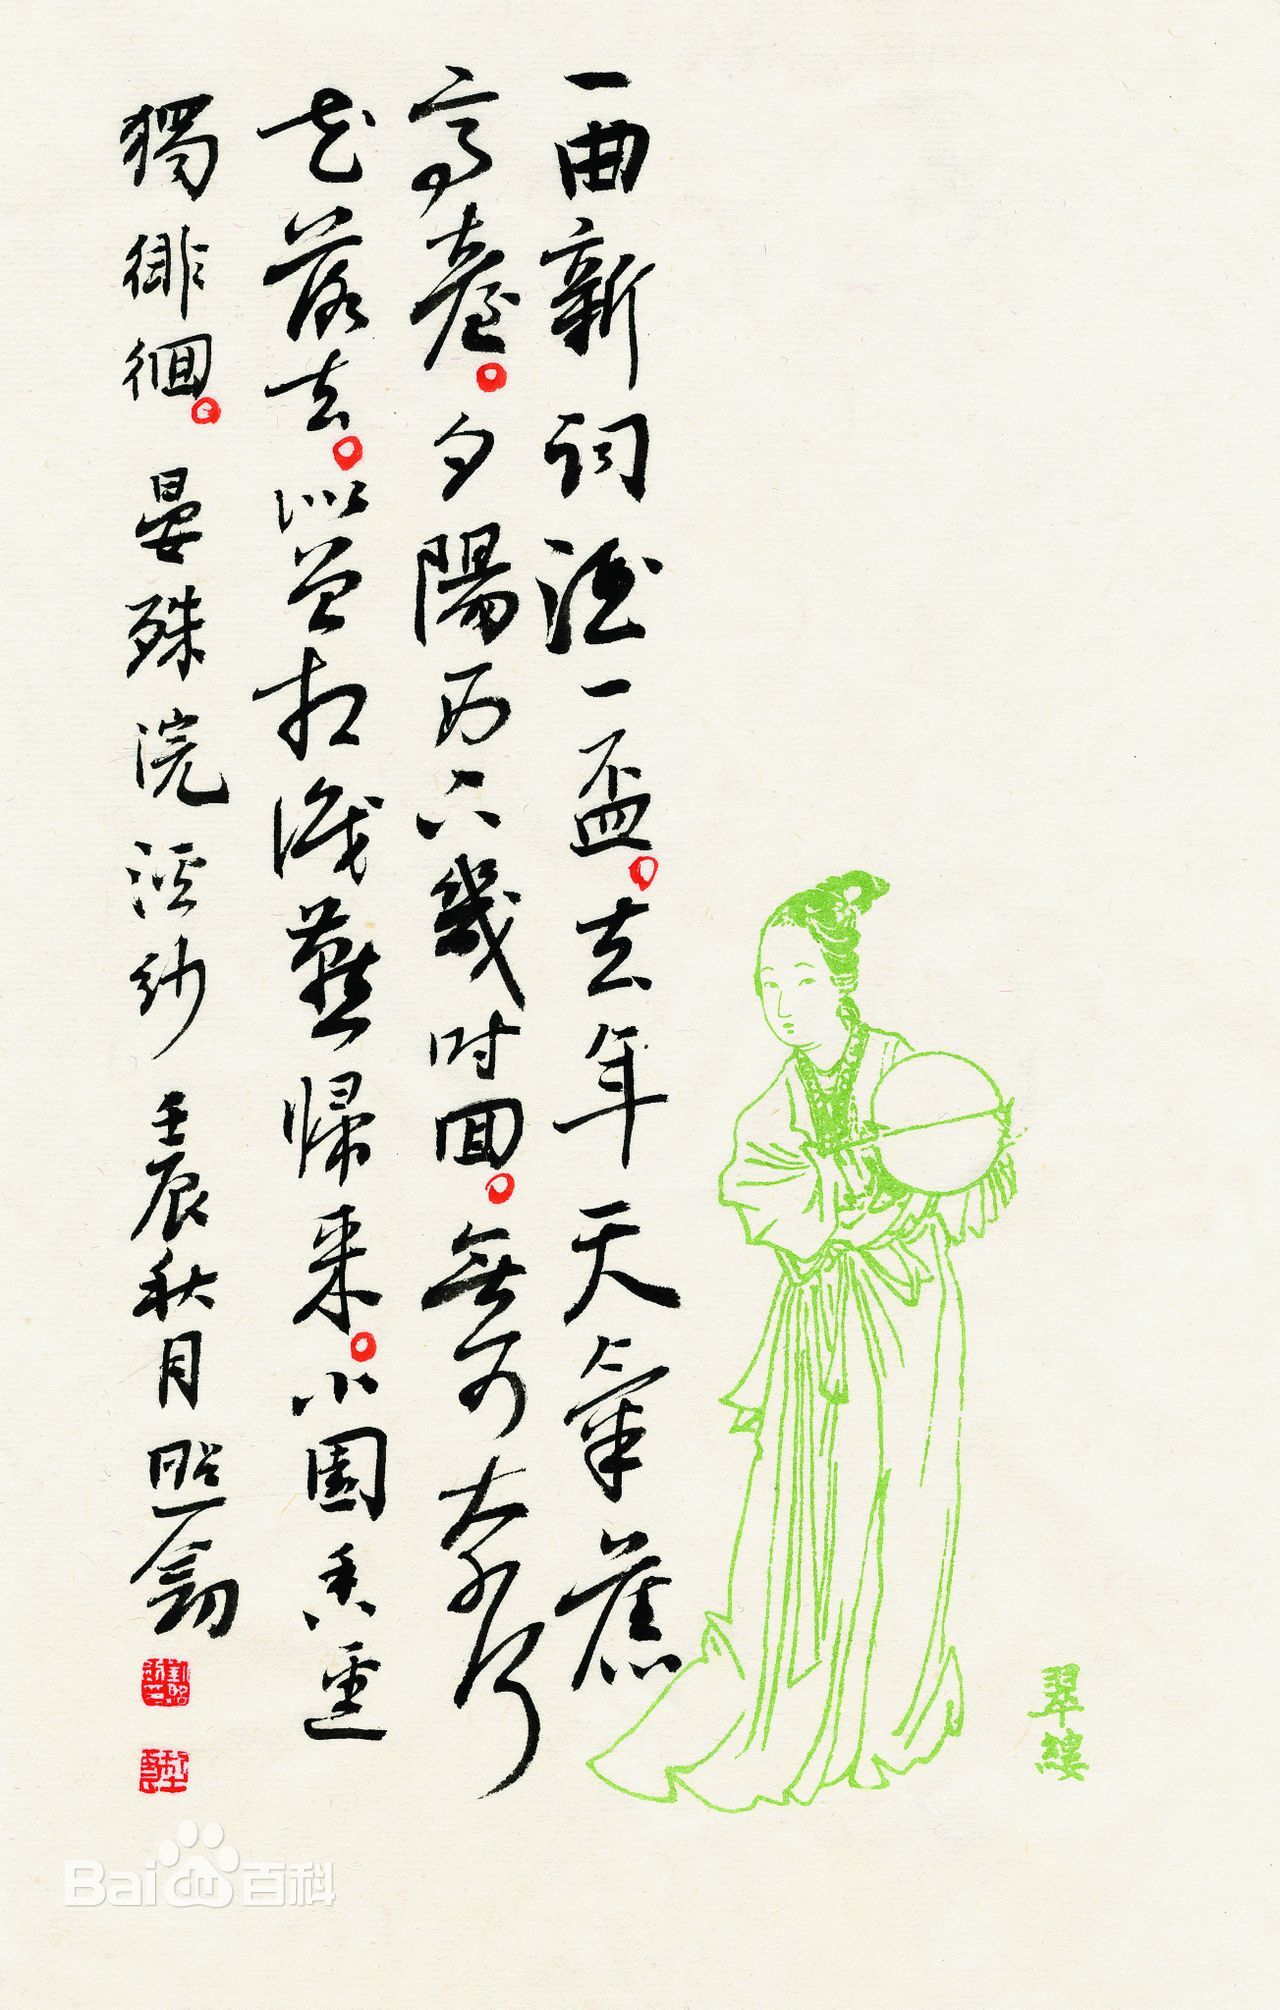 一曲新詞酒一盃。去年天氣舊
亭臺。夕陽西下幾时回。無可奈何
花落去。似曾相識燕歸来。小園香逕
獨徘徊。晏殊浣溪紗 壬辰秋月 照
翠縷
Bai百科